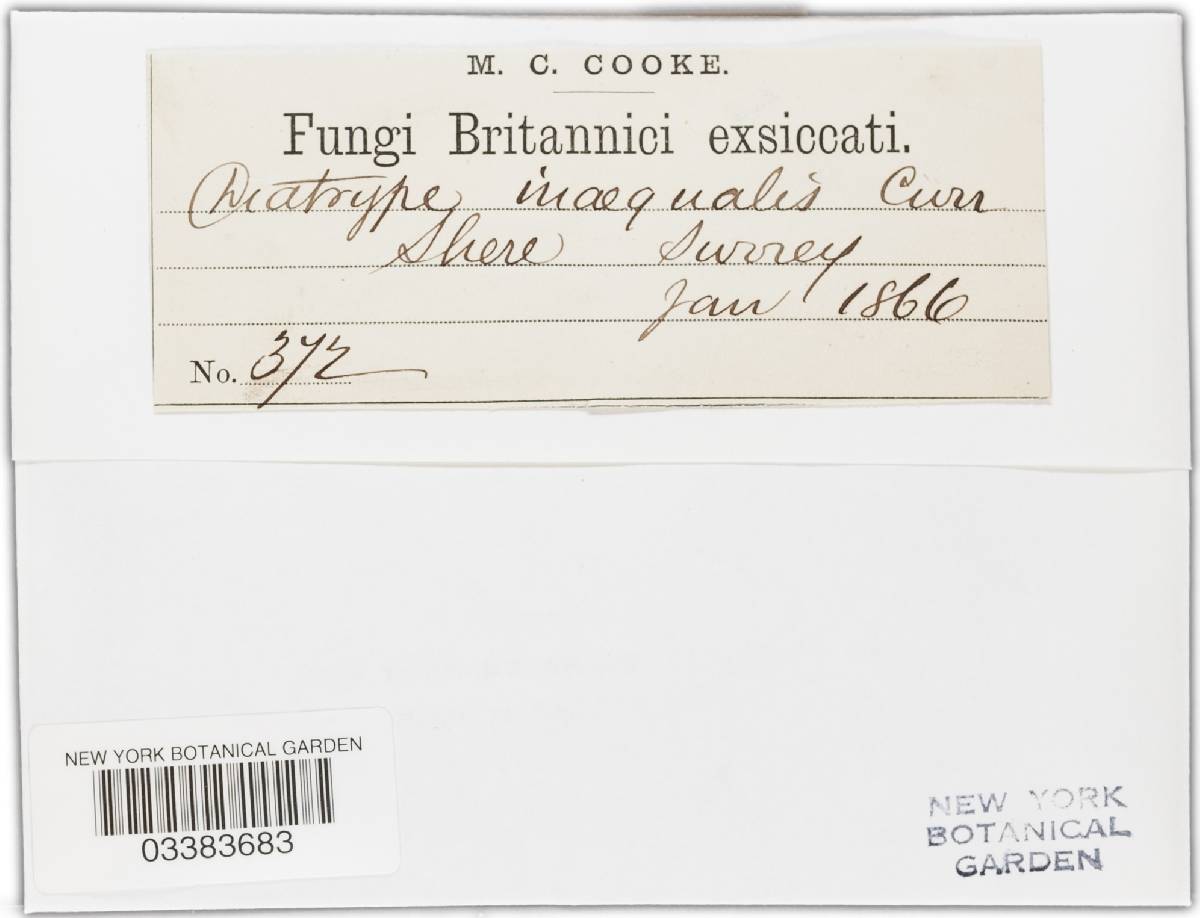 M. C. COOKE.
Fungi Britannici exsiccati.
Diatrype inæqualis Curr
Shere Surrey
Jan 1866
No. 372
NEW YORK BOTANICAL GARDEN
03383683
NEW YORK
BOTANICAL
GARDEN